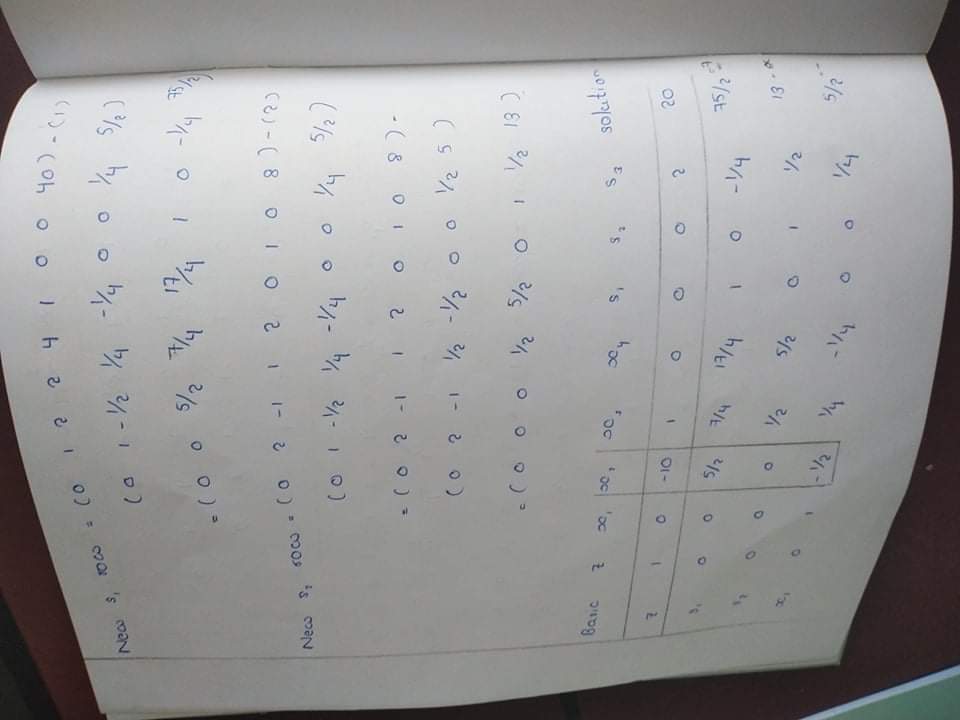 New s₁ row = (0 1 2 2 4 1 0 0 40) - (1)
(0 1 -1/2 1/4 -1/4 0 0 1/4 5/2)
= (0 0 5/2 7/4 17/4 1 0 -1/4 75/2)
New s₂ row = (0 2 -1 1 2 0 1 0 8) - (2)
(0 1 -1/2 1/4 -1/4 0 0 1/4 5/2)
= (0 2 -1 1 2 0 1 0 8) -
(0 2 -1 1/2 -1/2 0 0 1/2 5)
= (0 0 0 1/2 5/2 0 1 1/2 13)
Basic z x₁ x₁ x₁ x₄ s₁ s₂ s₃ solution
z 1 0 -10 1 0 0 0 2 20
s₁ 0 0 5/2 7/4 17/4 1 0 -1/4 75/2
s₂ 0 0 0 1/2 5/2 0 1 1/2 13
x₁ 0 1 -1/2 1/4 -1/4 0 0 1/4 5/2 --